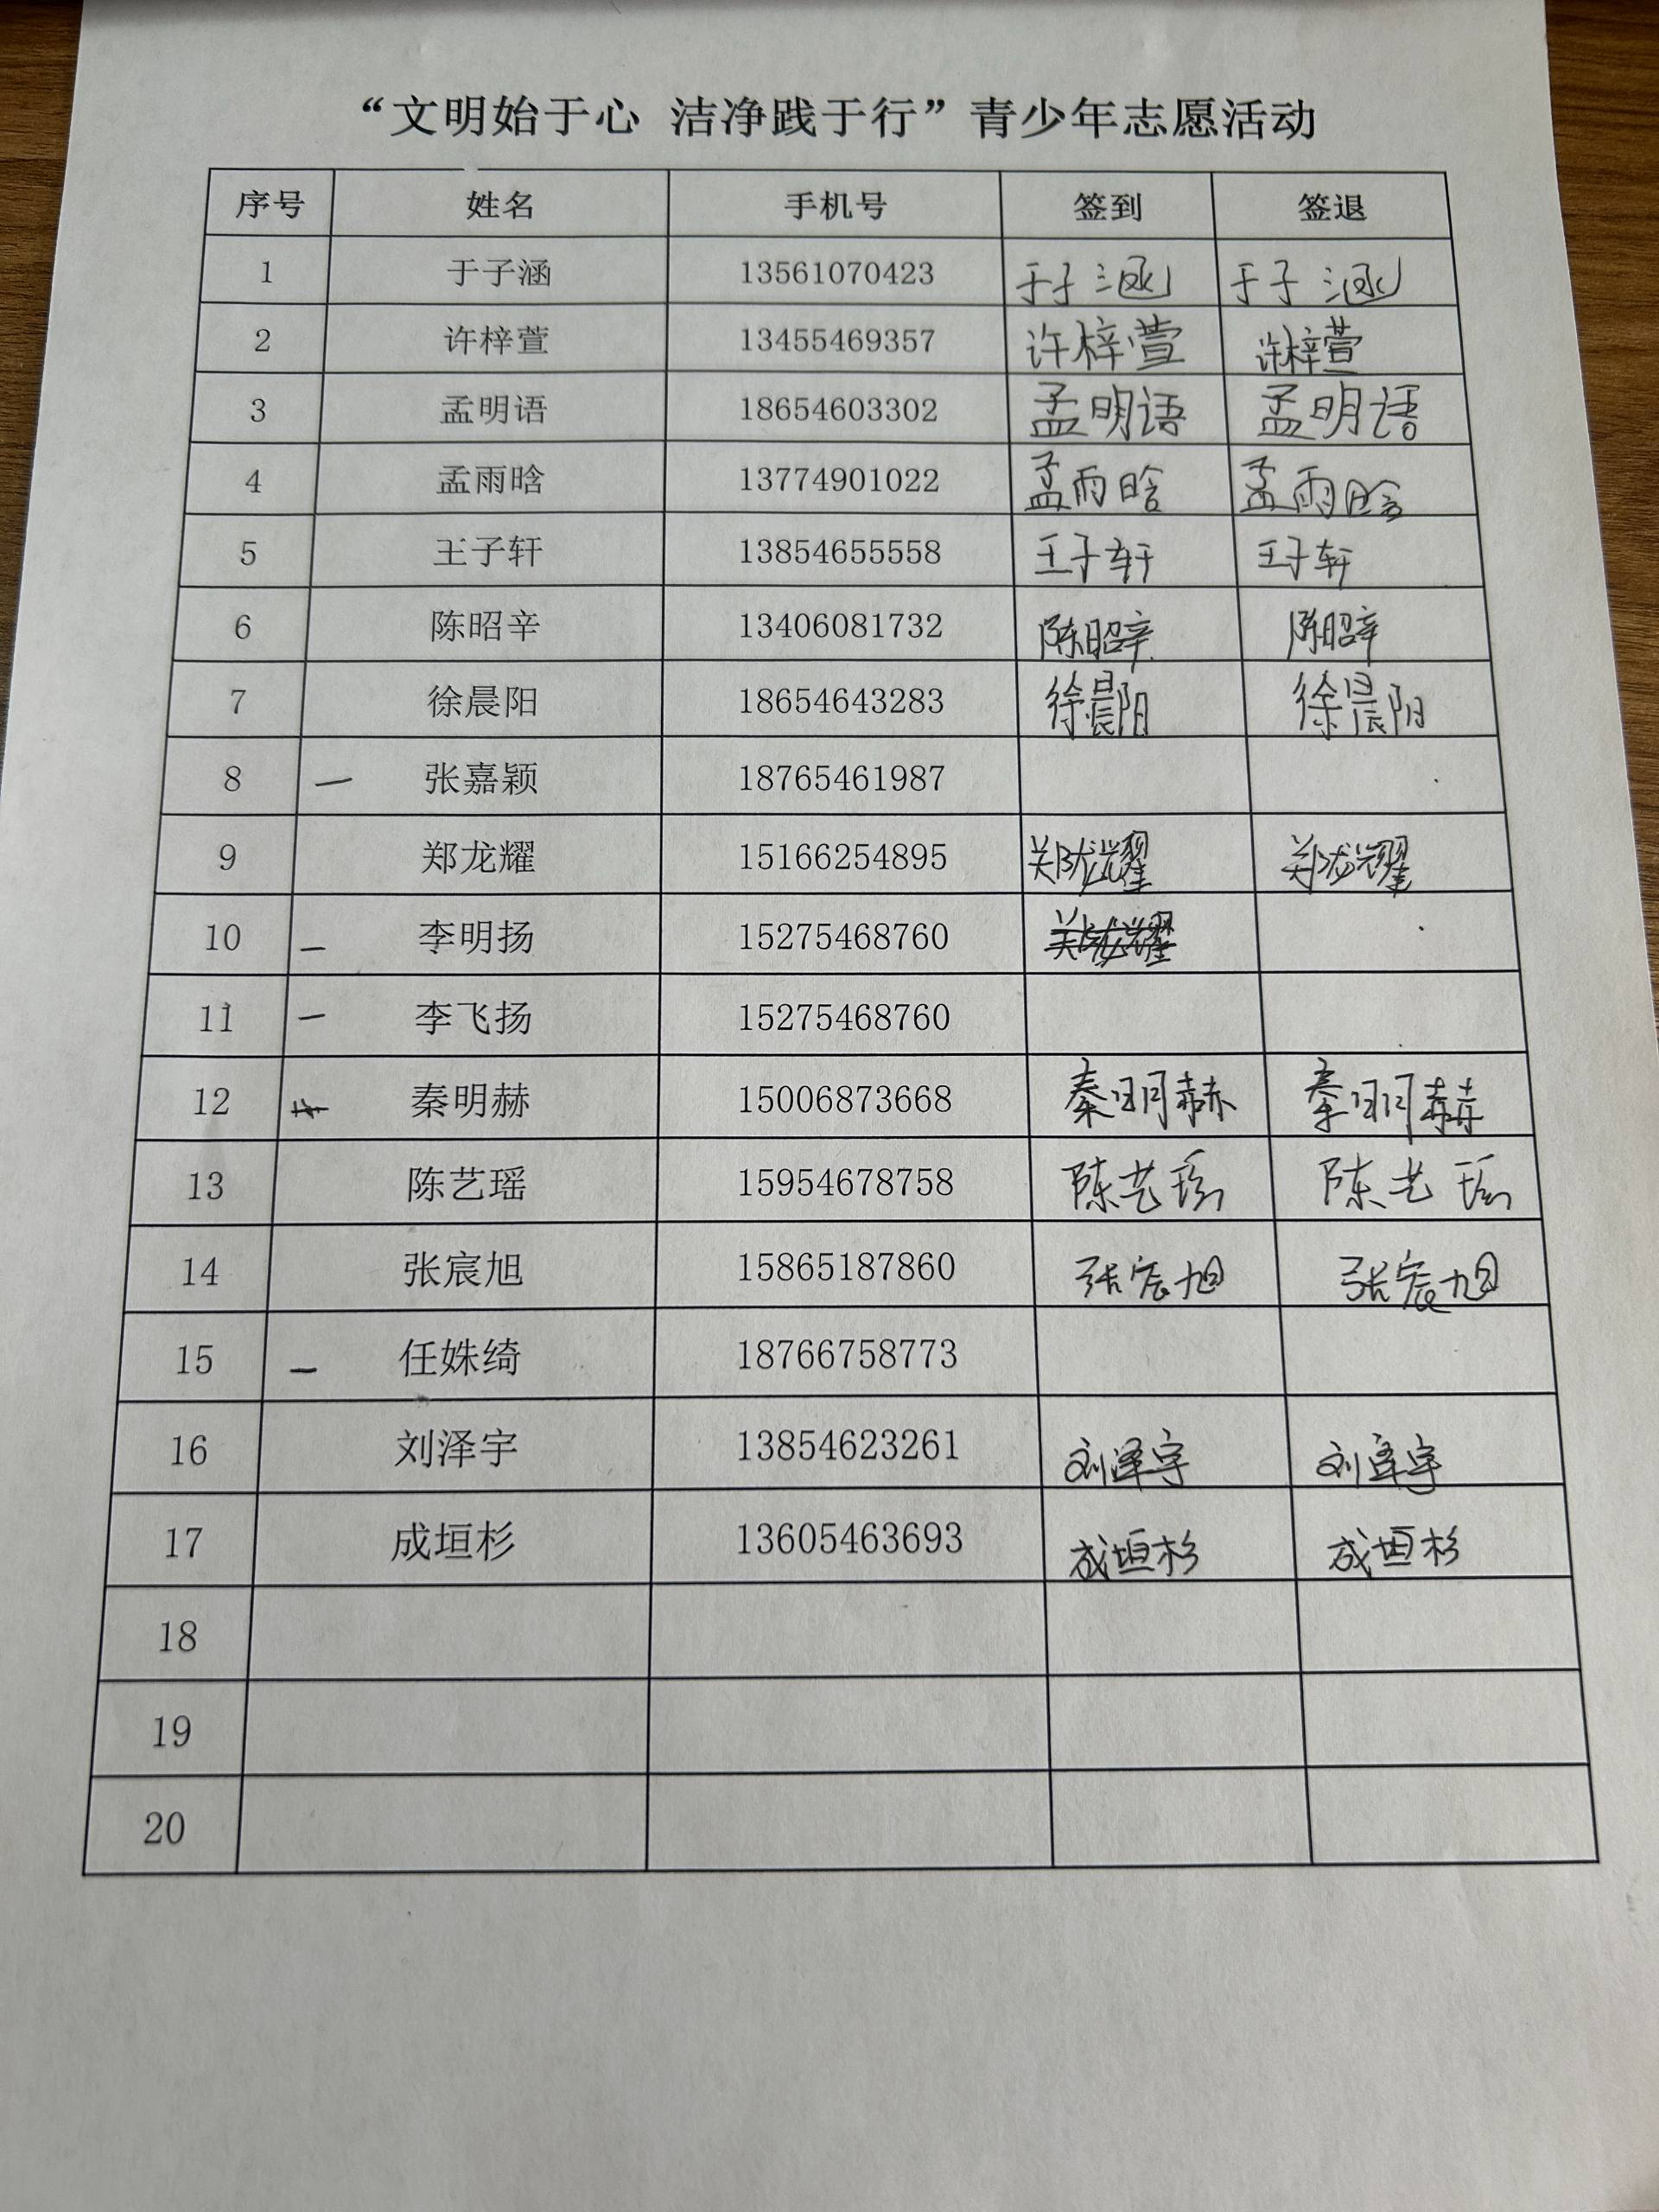 “文明始于心 洁净践于行”青少年志愿活动
序号 姓名 手机号 签到 签退
1 于子涵 13561070423 于子涵 于子涵
2 许梓萱 13455469357 许梓萱 许梓萱
3 孟明语 18654603302 孟明语 孟明语
4 孟雨晗 13774901022 孟雨晗 孟雨晗
5 王子轩 13854655558 王子轩 王子轩
6 陈昭辛 13406081732 陈昭辛 陈昭辛
7 徐晨阳 18654643283 徐晨阳 徐晨阳
8 一 张嘉颖 18765461987
9 郑龙耀 15166254895 郑龙耀 郑龙耀
10 一 李明扬 15275468760 郑龙耀
11 一 李飞扬 15275468760
12 秦明赫 15006873668 秦明赫 秦明赫
13 陈艺瑶 15954678758 陈艺瑶 陈艺瑶
14 张宸旭 15865187860 张宸旭 张宸旭
15 一 任姝绮 18766758773
16 刘泽宇 13854623261 刘泽宇 刘泽宇
17 成垣杉 13605463693 成垣杉 成垣杉
18
19
20